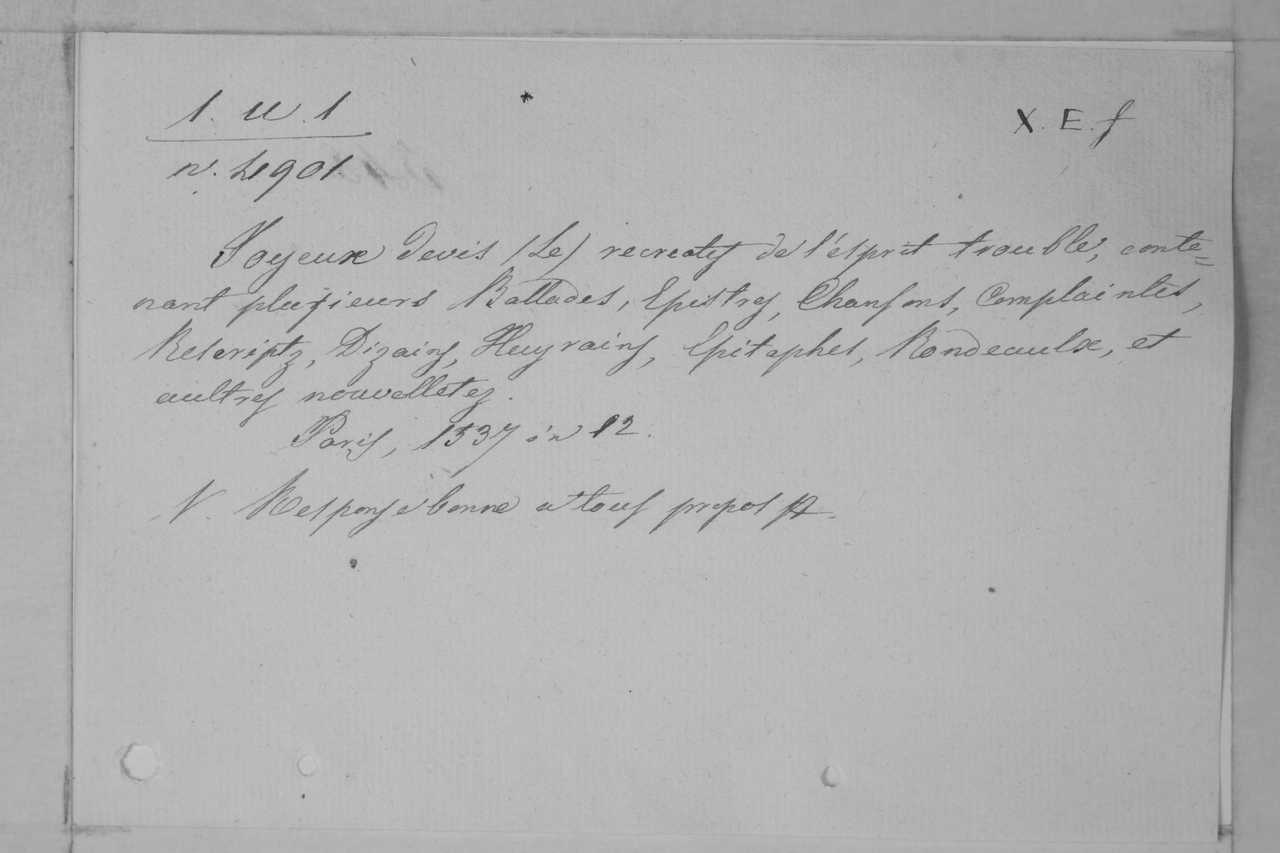 1. u. 1
X. E. f
n. 4901
Joyeux devis (Le) recreatif de l'esprit trouble, conte=
nant plusieurs Ballades, Epistres, Chansons, Complaintes,
Rescriptz, Dizains, Huyrains, Epitaphes, Rondeaulx, et
aultres nouvelletez.
Paris, 1537 in 12.
V. Response bonne a tous propos